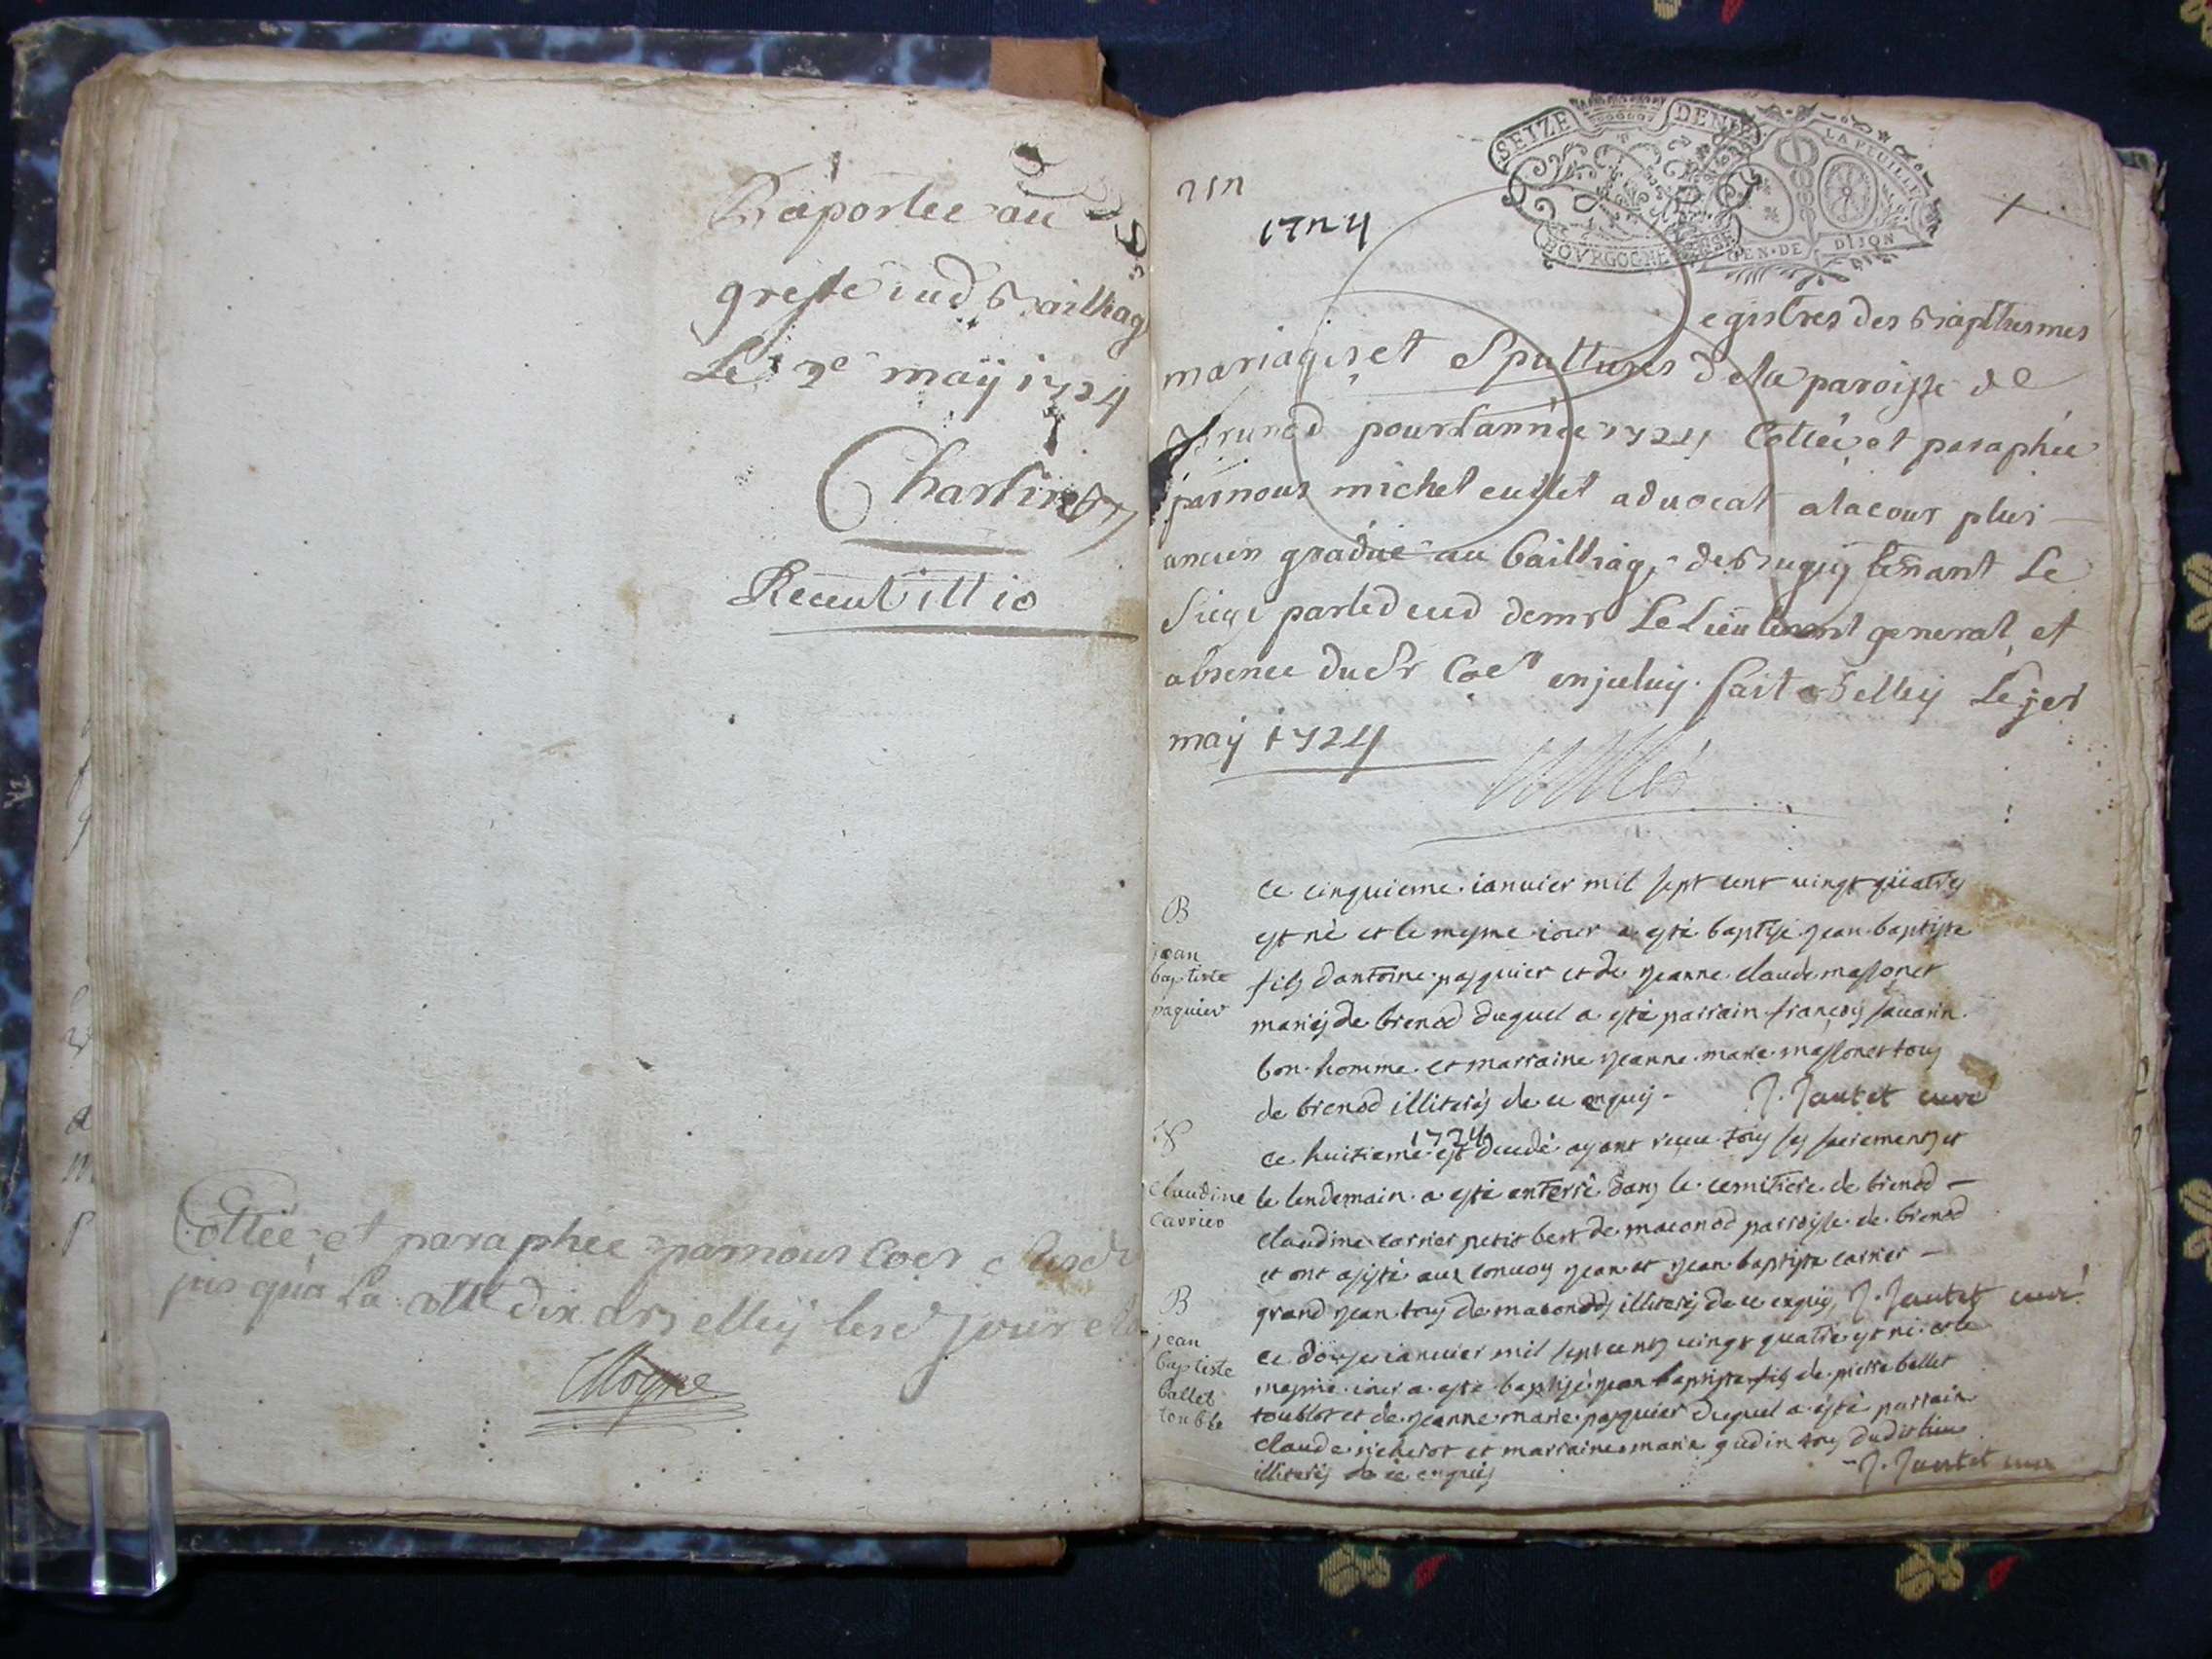 Raportee au
greffe dud Bailliag
Le 2e maÿ 1724
Receu
Cottée et paraphée parnous
jusqua La dix Belleÿ lesd jour
SEIZE DENIE
LA FEUILLE
BOVRGOGNE
GEN·DE DIJON
1724
egistres des Bapthesmes
mariages et Spultures dela paroisse de
Brunod pour Lannée 1724 Cottée et paraphée
parnous michel cuillet aduocat alacour plus
ancien gradué au bailliage de Bugey tenant Le
Siege parled demr Le Lieutenant general, et
absence du Sr enjceluy. fait a Belley Le jer
maÿ 1724
B
jean
baptiste
paquier
ce cinquieme ianuier mil sept cent uingt quatre
est né et le mesme iour a esté baptisé jean baptiste
fils dantoine pasquier et de jeanne claude massonet
mariés de brenod duquel a esté parrain françois sauarin
bon homme et marraine jeanne marie massonet tous
de brenod illiterés de ce enquis
J. Jantet curé
claudine
carrier
1724
ce huitieme est decedé ayant receu tous ses sacrements et
le lendemain a esté enterré dans le cemitiere de brenod
claudine carrier petit bert de maconod parroisse de brenod
et ont assisté aux conuoy jean et jean baptiste carrier
grand jean tous de maconod illiterés de ce enquis J. Jantet curé
B
jean
baptiste
ballet
ce douze ianuier mil sept cents uingt quatre est né et le
mesme iour a esté baptisé jean baptiste fils de pierre ballet
toublot et de jeanne marie pasquier duquel a esté parrain
claude richerot et marraine marie gudin tous dudit lieu
illiterés de ce enquis
J. Jantet